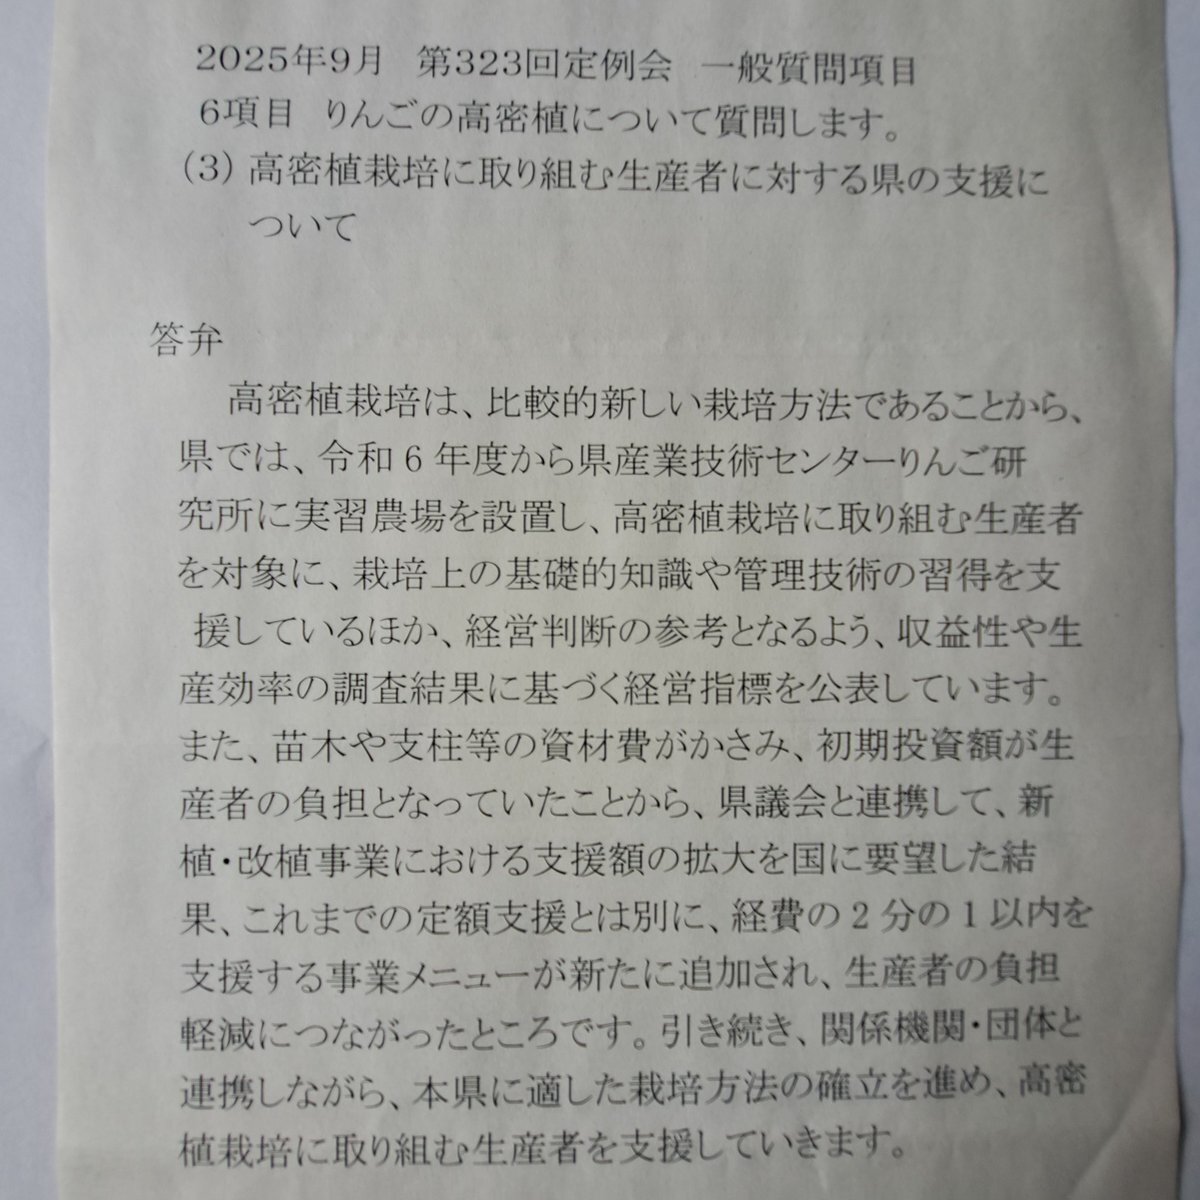 2025年9月　第323回定例会　一般質問項目
6項目　りんごの高密植について質問します。
(3) 高密植栽培に取り組む生産者に対する県の支援に
ついて
答弁
高密植栽培は、比較的新しい栽培方法であることから、
県では、令和6年度から県産業技術センターりんご研
究所に実習農場を設置し、高密植栽培に取り組む生産者
を対象に、栽培上の基礎的知識や管理技術の習得を支
援しているほか、経営判断の参考となるよう、収益性や生
産効率の調査結果に基づく経営指標を公表しています。
また、苗木や支柱等の資材費がかさみ、初期投資額が生
産者の負担となっていたことから、県議会と連携して、新
植・改植事業における支援額の拡大を国に要望した結
果、これまでの定額支援とは別に、経費の2分の1以内を
支援する事業メニューが新たに追加され、生産者の負担
軽減につながったところです。引き続き、関係機関・団体と
連携しながら、本県に適した栽培方法の確立を進め、高密
植栽培に取り組む生産者を支援していきます。